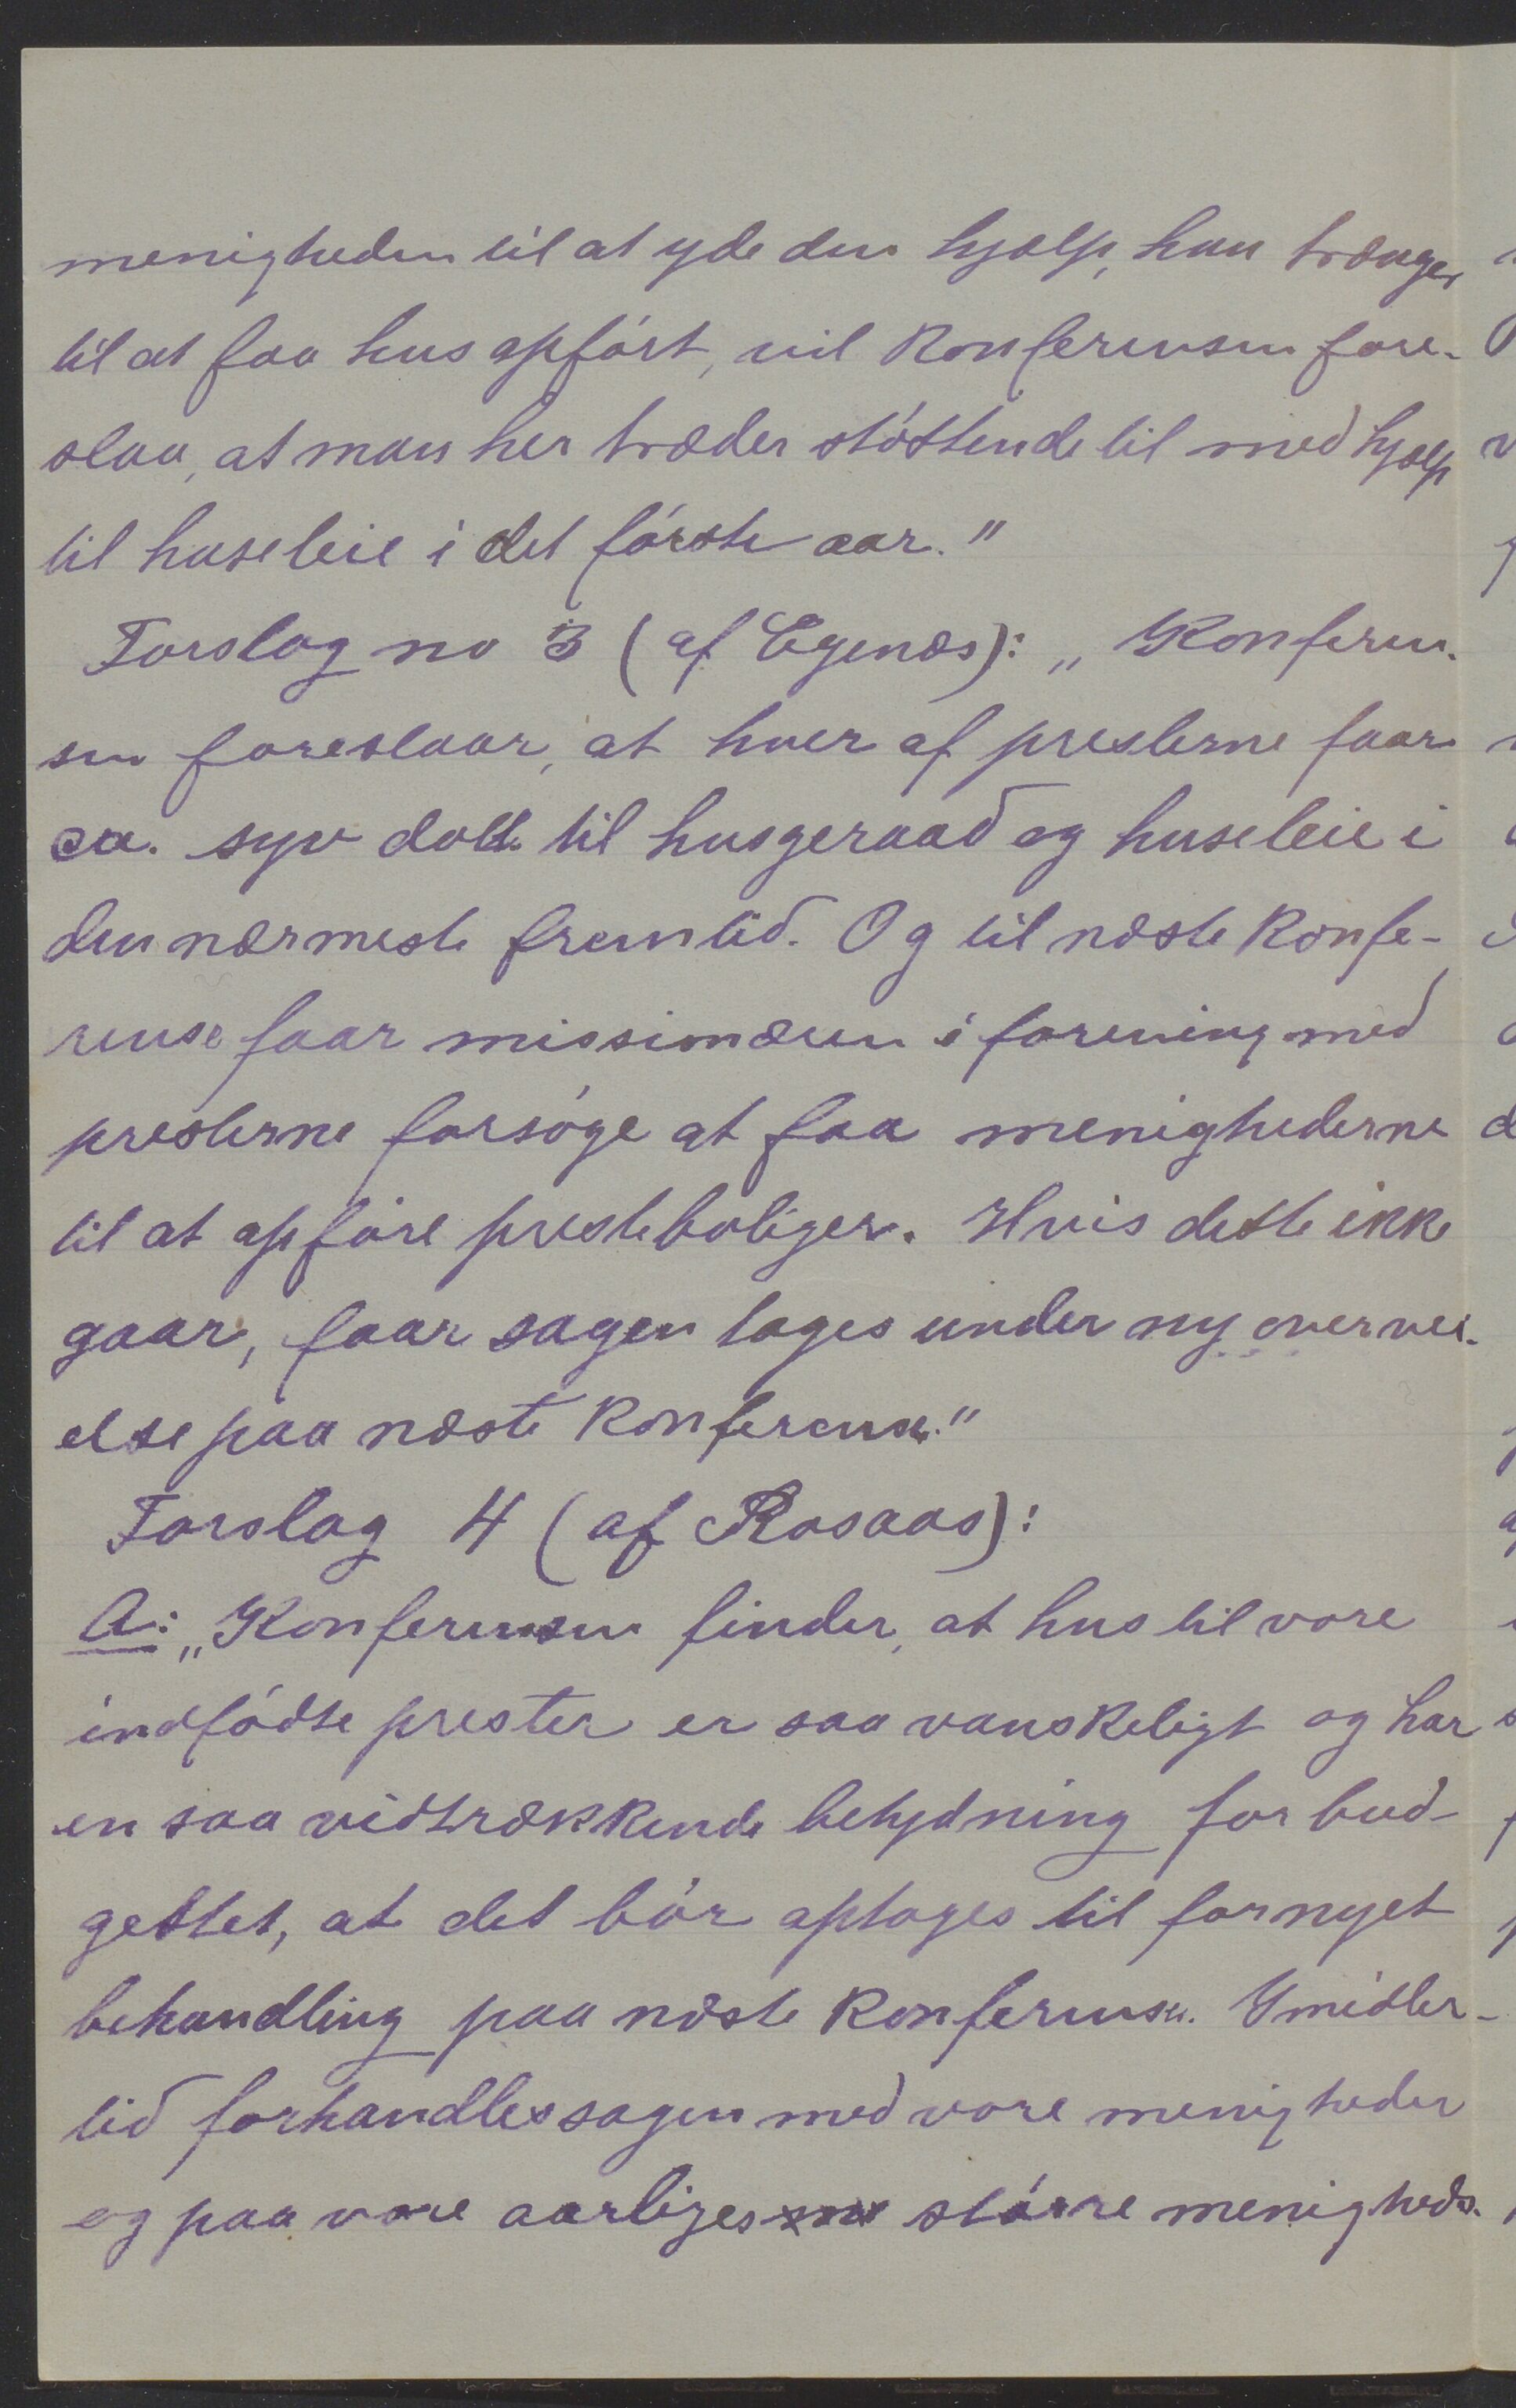 menigheden til at yde den hjælp, han trænger
til at faa hus opført, vil Konferensen fore-
slaa, at man her træder støttende til med hjælp
til husleie i det første aar."
Forslag no 3 (af Egenæs): „Konferen-
sen foreslaar, at hver af presterne faar
ca. syv doll. til husgeraad og huseleie i
den nærmeste fremtid. Og til næste Konfe-
rense faar missionæren i forening med
presterne forsøge at faa menighederne
til at opføre presteboliger. Hvis dette ikke
gaar, faar sagen tages under ny overvei-
else paa næste Konferense."
Forslag 4 (af Rosaas):
A: „Konferensen finder, at hus til vore
indfødte prester er saa vanskeligt og har
en saa vidtrækkende betydning for bud-
gettet, at det bør optages til fornyet
behandling paa næste Konferense. Imidler-
tid forhandles sagen med vore menigheder
og paa vore aarlige større menigheds-